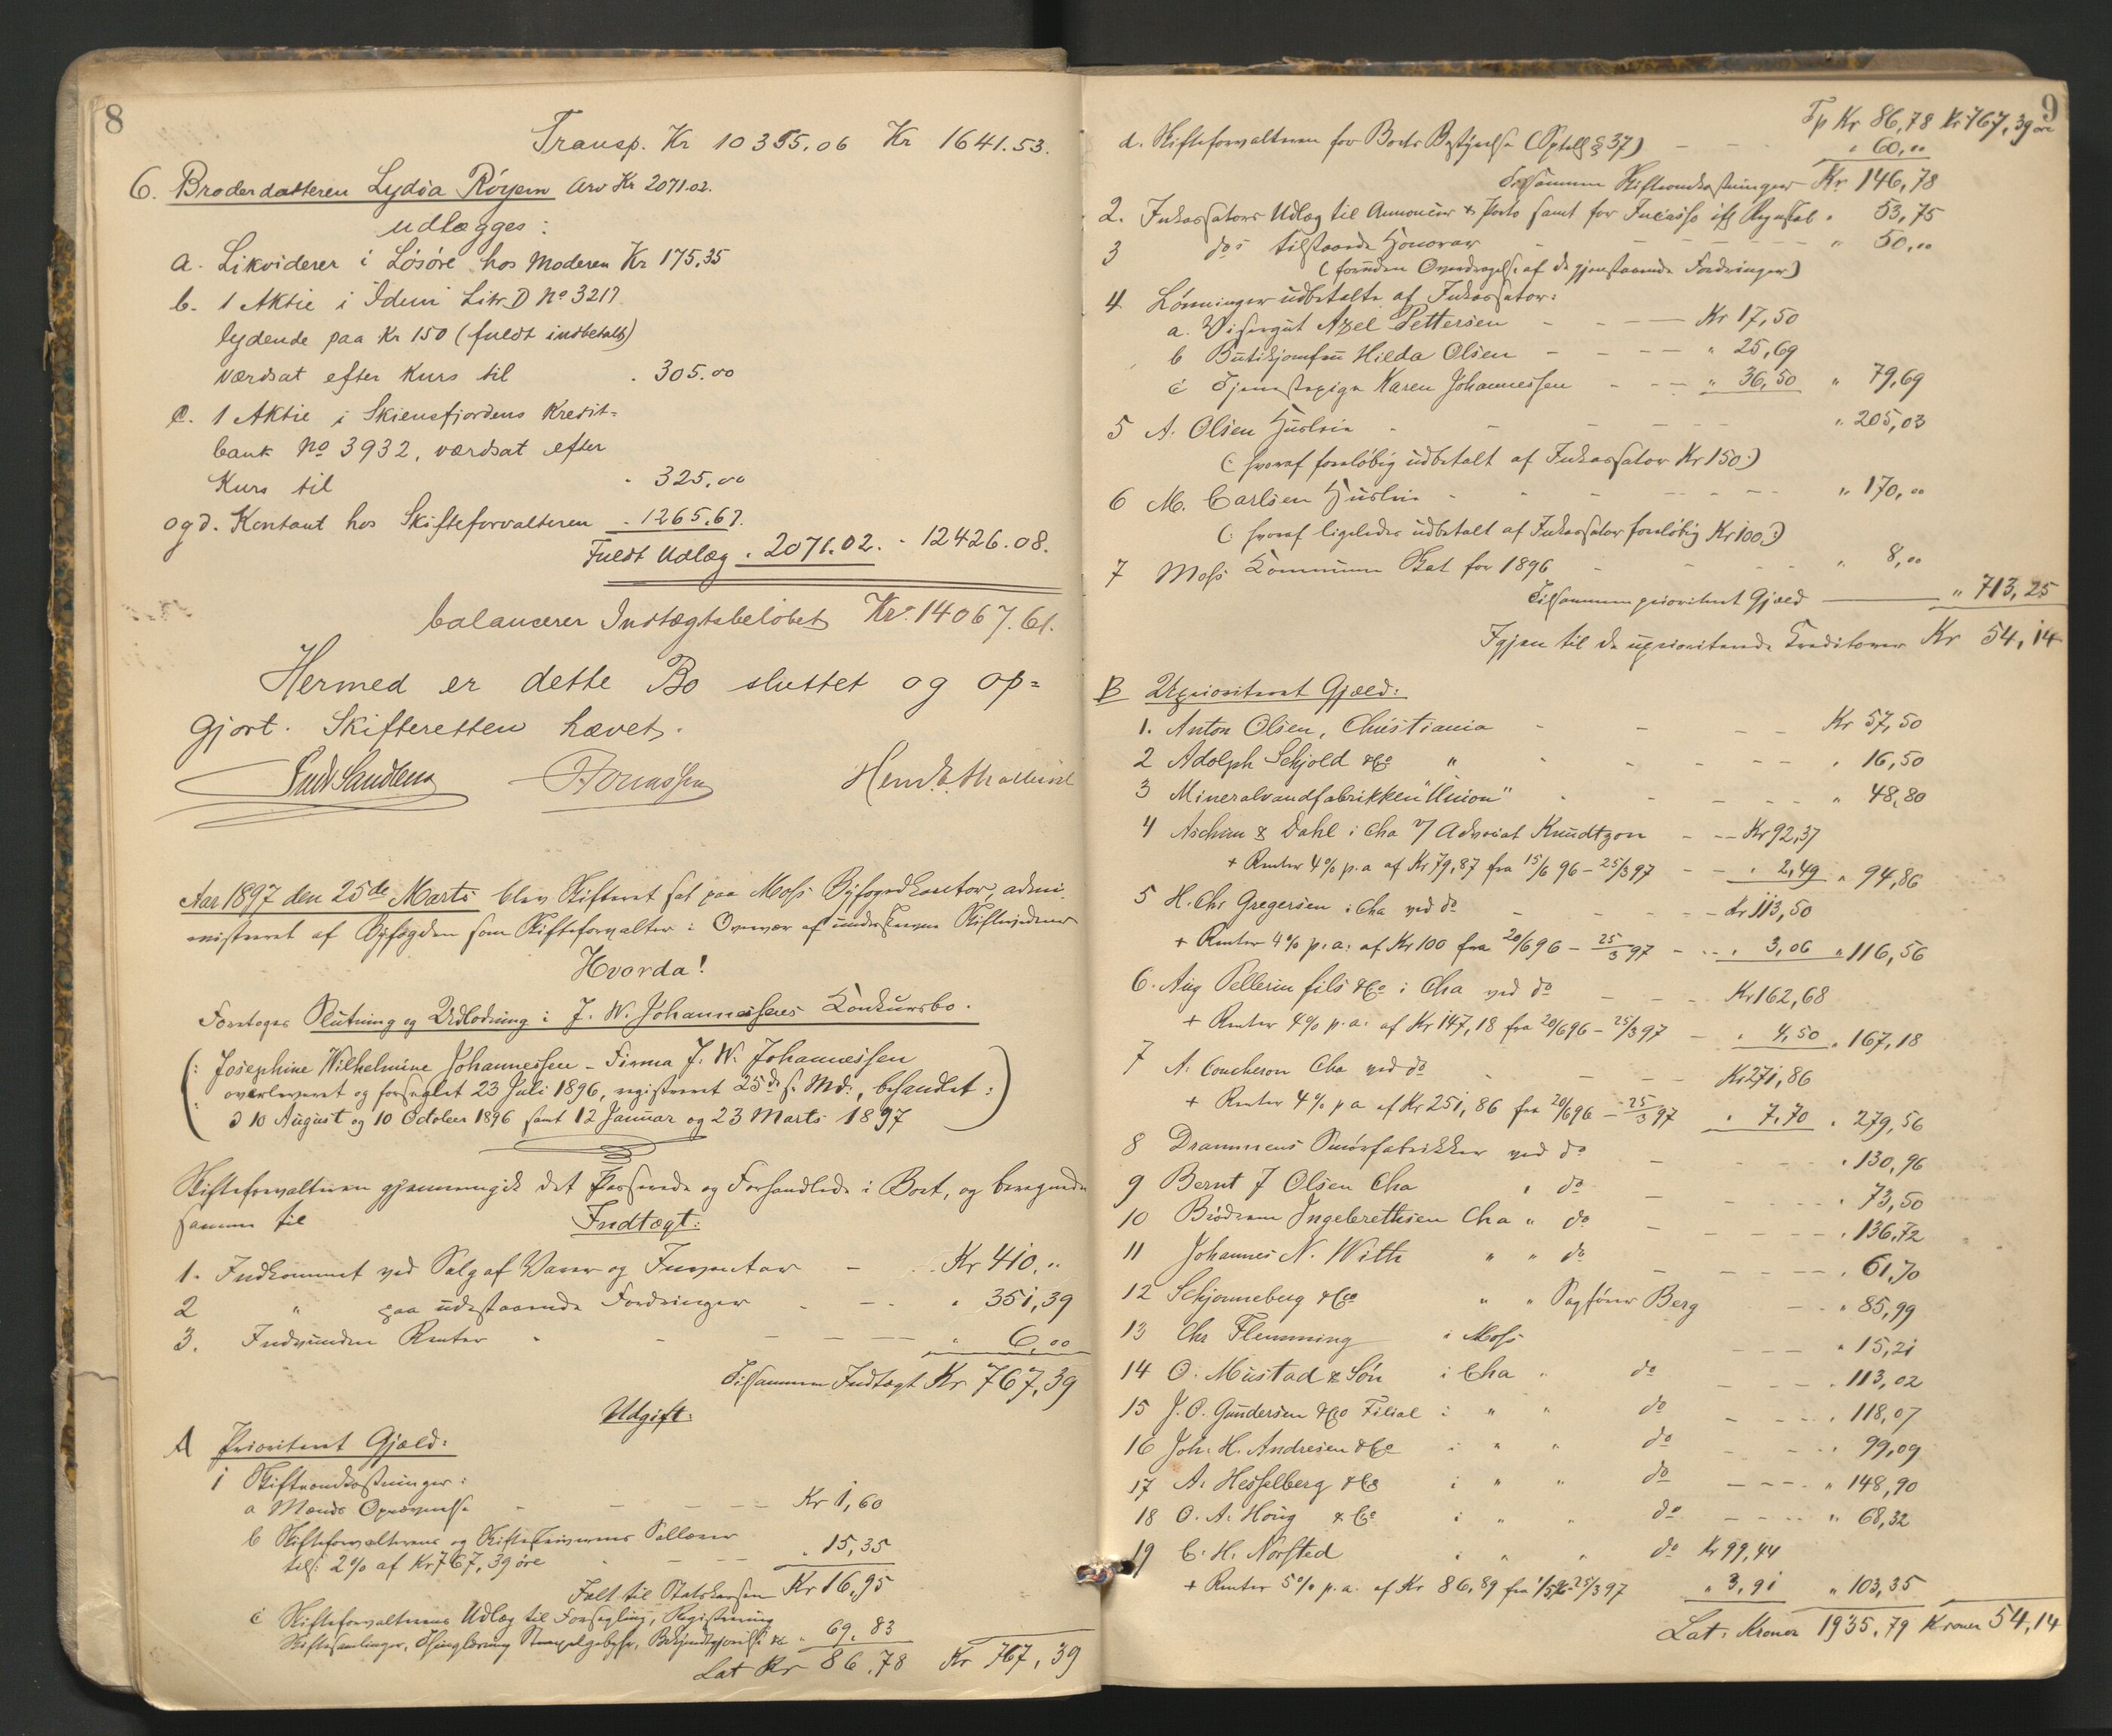 8
Transp. Kr 10355.06 Kr 1641.53.
6. Broderdatteren Lydia Röyem arv Kr 2071.02.
udlægges:
a. Likviderer i Lösöre hos Moderen Kr 175,35
b. 1 Aktie i Idem Litr D No 3217
lydende paa Kr 150 (fuldt indbetalt)
værdsat efter Kurs til . 305.00
c. 1 Aktie i Skiensfjordens Kredit=
bank No 3932, værdsat efter
Kurs til - 325.00
og d. Kontant hos Skifteforvalteren - 1265.67.
Fuldt Udlæg . 2071.02. - 12426.08.
balancerer Indtægtsbelöbet Kr. 14067.61.
Hermed er dette Bo sluttet og op=
gjort. Skifteretten hævet.
Aar 1897 den 25de Marts blev Skifteret sat paa Moss Byfogedkontor, admi-
nistreret af Byfogden som Skifteforvalter i Overvær af underskrevne Skiftevidner
Hvorda!
Foretoges Slutning og Udlodning i J. W. Johannessens Konkursbo.
(: Josephine Wilhelmine Johannessen – Firma J. W. Johannessen
overleveret og forseglet 23 Juli 1896, registreret 25de s. Md., behandlet:
d 10 August og 10 October 1896 samt 12 Januar og 23 Marts 1897 )
Skifteforvalteren gjennemgik det Passerede og Forhandlede i Boet, og beregnede
samme til Indtægt:
1. Indkommet ved Salg af Varer og Inventar - Kr 410,"
2 " paa udestaaende Fordringer - " 351,39
3. Indvundne Renter - " 6,00
Tilsammen Indtægt Kr 767,39
Udgift:
A Prioriteret Gjæld:
1 Skifteomkostninger:
a Mænds Opnævnelse - Kr 1,60
b Skifteforvalterens og Skifteskriverens Sallærer
tils: 2% af Kr 767,39 öre . 15,35
Ialt til Statskassen Kr 16,95
c Skifteforvalterens Udlæg til Forsegling, Registrering
Skiftesamlinger, Thinglæsning Stempelgebyr, Bekjendtgjörelse &c " 69.83
Lat Kr 86.78 Kr 767,39
9
Tp Kr 86,78 Kr 767,39 öre
d. Skifteforvalteren for Boets Bestyrelse (Sptellg § 37) - " 60,"
Tilsammen Skifteomkostninger Kr 146,78
2. Inkassators Udlæg til Annoncer & Porto samt for Incasso ifg Regnskab " 53,75
3 do tilstaaede Honorar - " 50,"
(foruden Overdragelse af de gjenstaaende Fordringer)
4 Lönninger udbetalte af Inkassator:
a. Visergut Axel Pettersen - Kr 17,50
b Butikjomfru Hilda Olsen - " 25,69
c Tjenestepige Karen Johannessen - " 36,50 " 79,69
5 A. Olsen Husleie - " 205,03
(: hvoraf foreløbig udbetalt af Inkassator Kr 150:)
6 M. Carlsen Husleie - " 170,"
(: hvoraf ligeledes udbetalt af Inkassator foreløbig Kr 100:)
7 Moss Kommune Skat for 1896 - " 8,"
Tilsammen prioriteret Gjæld " 713,25
Igjen til de uprioriterede Kreditorer Kr 54,14
B Uprioriteret Gjæld:
1. Anton Olsen, Christiania - Kr 57,50
2 Adolph Schjold & Co " - " 16,50
3 Mineralvandfabrikken "Union" - " 48,80
4 Aschim & Dahl i Cha v/ Advocat Knudtzon - Kr 92,37
+ Renter 4% p.a af Kr 79,87 fra 15/6 96 – 25/3 97 - " 2,49 " 94,86
5 H. Chr Gregersen i Cha ved do - Kr 113,50
+ Renter 4% p.a: af Kr 100 fra 20/6 96 – 25/3 97 - " 3,06 " 116,56
6. Aug Pellerin fils & Co i Cha ved do - Kr 162,68
+ Renter 4% p.a: af Kr 147,18 fra 20/6 96 – 25/3 97 - " 4,50 " 167,18
7 N. Coucheron Cha ved do - Kr 271,86
+ Renter 4% p a af Kr 251,86 fra 20/6 96 – 25/3 97 " 7.70 " 279,56
8 Drammens Smörfabrikker ved do - " 130,96
9 Bernt J Olsen Cha " do - " 73,50
10 Brödrene Ingebrethsen Cha " do - " 136,72
11 Johannes N. With " " do - " 61,70
12 Schjonneberg & Co " " Sagförer Berg - " 85,99
13 Chr Flemming i Moss - " 15,21
14 O. Mustad & Sön i Cha " do - " 113,02
15 J. O. Gundersen & Co Filial i " " do - " 118,07
16 Joh. H. Andresen & Co i " " do - " 99,09
17 A. Hesselberg & Co i " " do - " 148,90
18 O. A. Höug & Co i " " do - " 68,32
19 C. H. Norsted i " " do Kr 99,44
+ Renter 5% p.a. af Kr 86,89 fra 1/5 96 – 25/3 97 " 3,91 " 103,35
Lat. Kroner 1935,79 Kroner 54,14